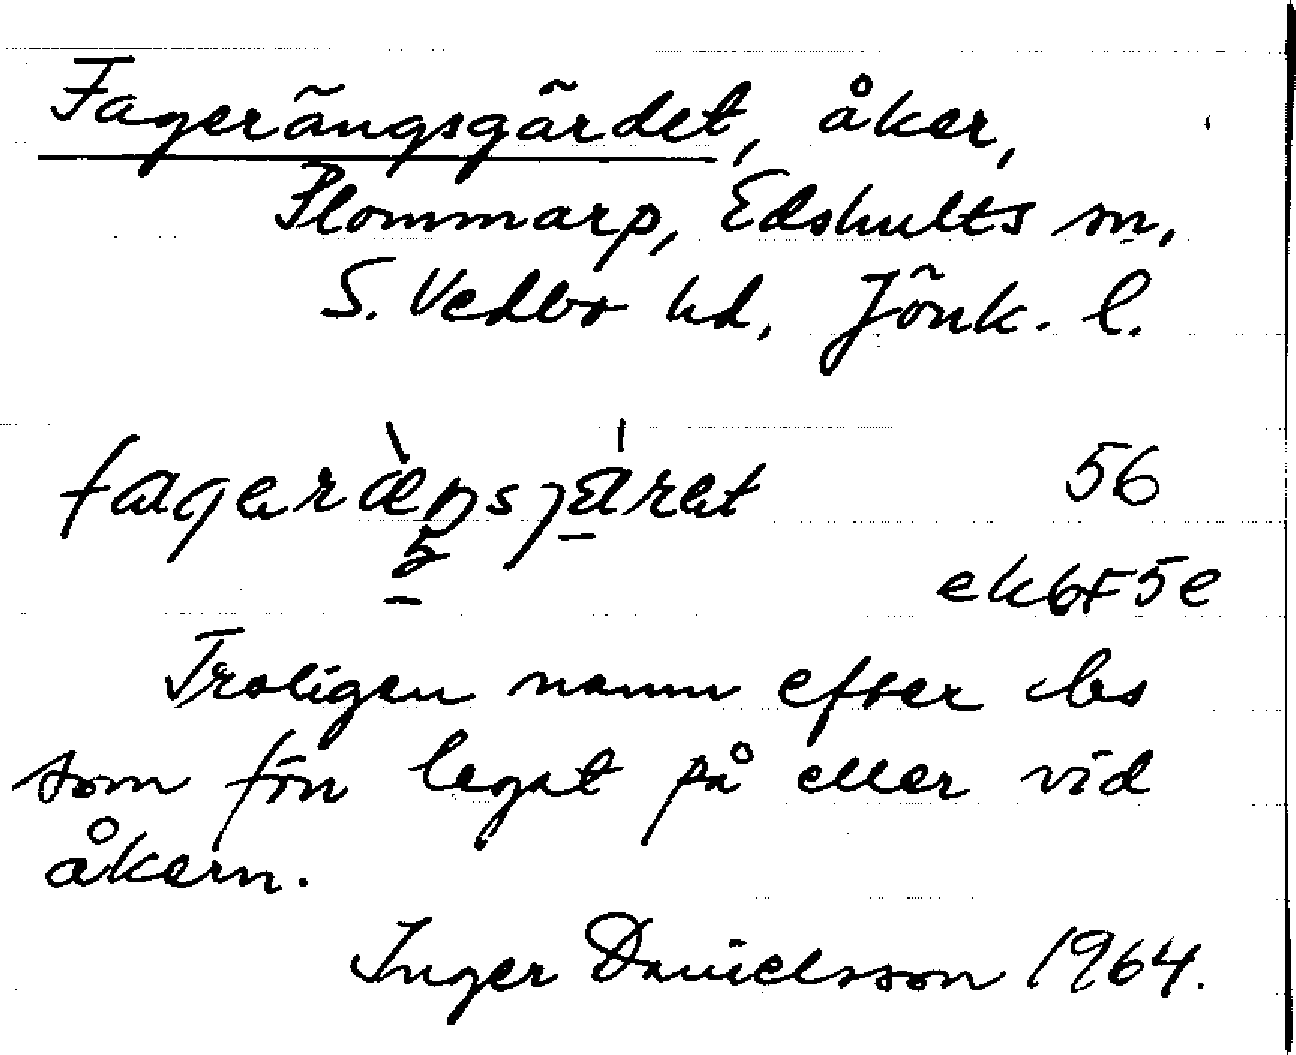 Fagerängsgärdet, åker,
Plommarp, Edshults sn,
S. Vedbo hd, Jönk. l.
56
ek 6F5e
Troligen namn efter bs
som förr legat på eller vid
åkern.
Inger Danielsson 1964.